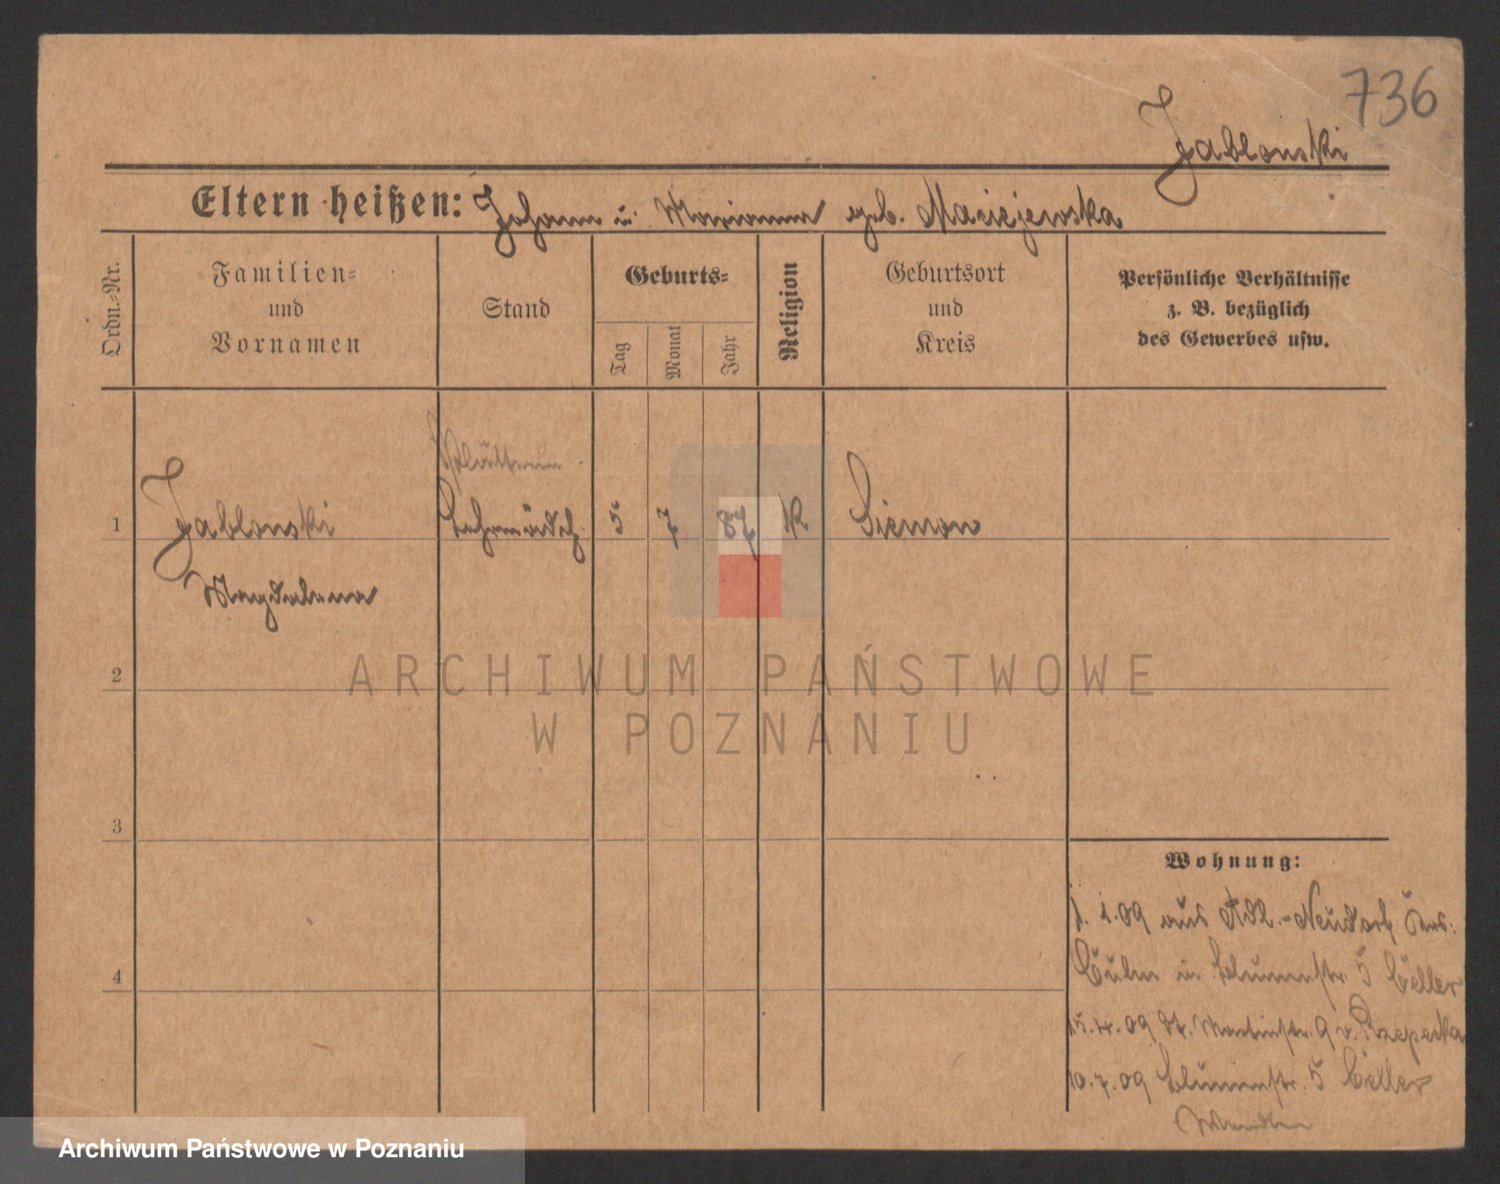 736
Jablonski
Eltern heißen: Johann u. Marianna geb. Maciejewska
Ordn.-Nr.
Familien-
und
Vornamen
Stand
Geburts-
Tag
Monat
Jahr
Religion
Geburtsort
und
Kreis
Persönliche Verhältnisse
z. B. bezüglich
des Gewerbes usw.
Plätterin
1 Jablonski 5 7 87 K Siemon
Magdalena
2
ARCHIWUM PAŃSTWOWE
W POZNANIU
3
4
Wohnung:
1.09 aus Adl.-Neudorf Krs.
Culm in Blumenstr. 5 Celler
15.4.09 St. Martinstr. 9 v. Rzepecka
10.7.09 Blumenstr. 5 Celler
Archiwum Państwowe w Poznaniu